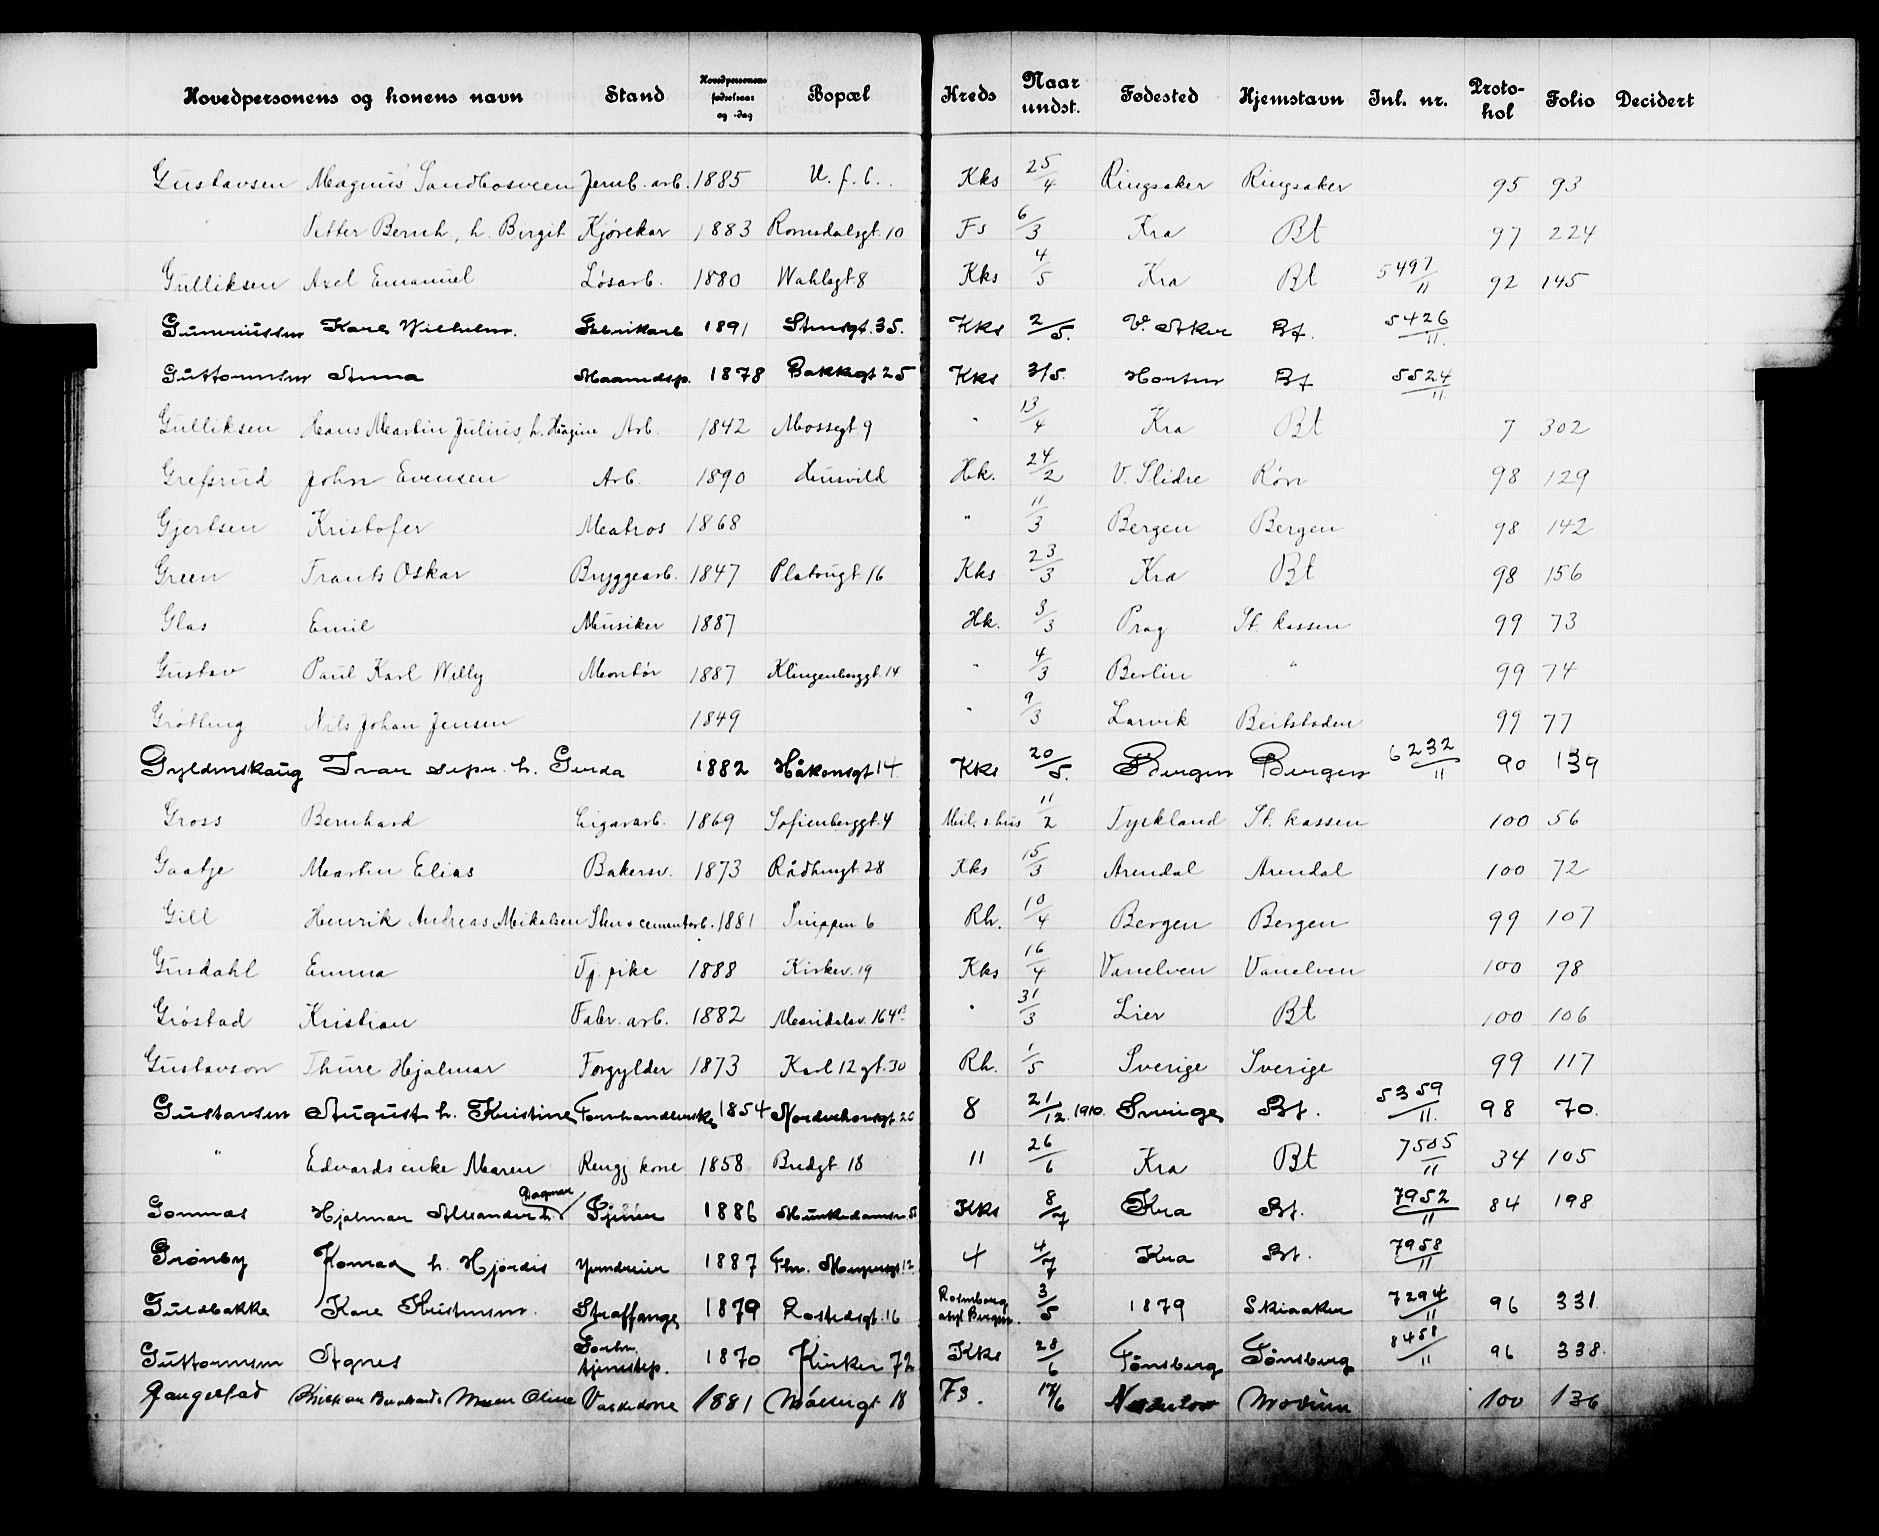 Hovedpersonens og konens navn Stand Hovedpersonens fødselsaar og -dag Bopæl Kreds Naar undst. Fødested Hjemstavn Inl. nr. Proto-kol Folio Decidert
Gustavsen Magnus Sandbosveen Jernb. arb. 1885 U. f. b. Kks 25/4 Ringsaker Ringsaker 95 93
" Petter Bernh, h. Birgit Kjørekar 1883 Romsdalsgt. 10 Fs 6/3 Kra Bt 97 224
Gulliksen Axel Emanuel Løsarb. 1880 Wahlsgt 8 Kks 4/5 Kra Bt 5497/11 92 145
Gunnriussen Karl Wilhelm. Fabrikarb 1891 Stensgt. 35. Kks 2/5. V. Aker Bt. 5426/11.
Guttormsen Anna Maanedsp. 1878 Bakkegt 25 Kks 3/5. Horten Bt 5524/11
Gulliksen Hans Martin Julius, h. Hagine Arb. 1842 Mossegt 9 " 13/4 Kra Bt 7 302
Grefsrud John Evensen Arb. 1890 Husvild Hk. 24/2 V. Slidre Røn 98 129
Gjertsen Kristofer Matros 1868 " 11/3 Bergen Bergen 98 142
Green Frants Oskar Bryggearb. 1847 Platougt 16 Kks 23/3 Kra Bt 98 156
Glas Emil Musiker 1887 Hk. 3/3 Prag St. kassen 99 73
Gustav Paul Karl Willy Montør 1887 Klingenberggt. 14 " 4/3 Berlin " 99 74
Grøtting Nils Johan Jensen 1849 " 9/3 Larvik Beitstaden 99 77
Gyldenskaug Ivar sepr. h. Gerda 1882 Håkonsgt 14 Kks 20/5. Bergen Bergen 6232/11 90 139
Gross Bernhard Cigararb. 1869 Sofienberggt. 4 Mil. s. hus 11/2 Tyskland St. kassen 100 56
Gaatje Martin Elias Bakersv. 1873 Rådhusgt 28 Kks 15/3 Arendal Arendal 100 72
Gill Henrik Andreas Mikalsen Sten & cementarb. 1881 Snippen 6 Rh. 10/4 Bergen Bergen 99 107
Gusdahl Emma Tj. pike 1888 Kirkev. 19 Kks 16/4 Vanelven Vanelven 100 98
Grøstad Kristian Fabr. arb. 1882 Maridalsv. 164 B " 31/3 Lier Bt 100 106
Gustavson Thure Hjalmar Forgylder 1873 Karl 12 gt. 30 Rh. 1/5 Sverige Sverige 99 117
Gustavsen August h. Kristine 1854 20 8 21/12. 1910. Sverige Bt. 5359/11. 98 70.
" Edvards enke Maren Rengj kone 1858 Bredgt 18 11 26/6 Kra Bt 7505/11 34 105
Gommas Hjalmar Alexander h. Dagmar 1886 Kks 8/7 Kra Bt. 7952/11 84 198
Grønby Konrad h. Hjørdis 1887 Thv. Meyersgt 12 4 4/7 Kra Bt. 7958/11
Guldbakke Kare Kristensen. Straffange 1879 16 Rosenberg Bergen. 3/5 1879 Skiaaker 7294/11 96 331.
Guttormsen Agnes Forhv. tjenestep. 1870 Kirkev 72 Kks 28/6 Tønsberg Tønsberg 8458/11 96 338.
Gangestad Maren Oline Vaskekone 1881 Møllergt 18 Fs. 17/6 Modum 100 136